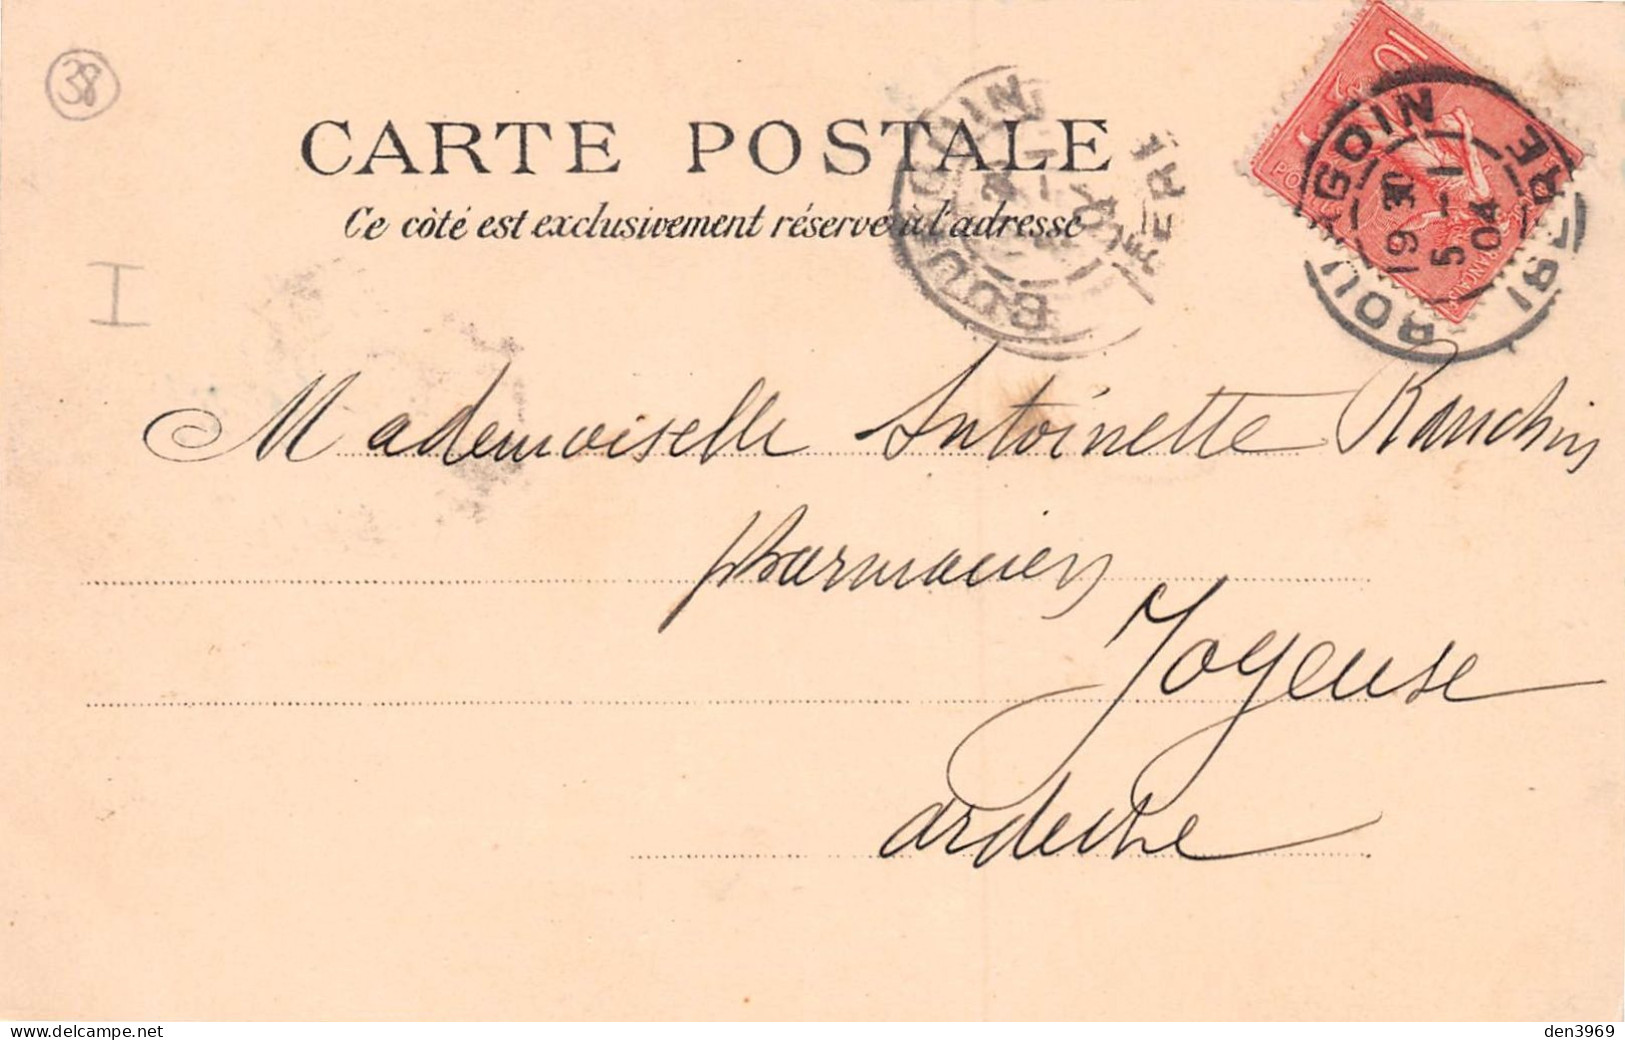 38
CARTE POSTALE
Ce côté est exclusivement réservé à l'adresse
I
BOURGOIN
ISERE
10
BOURGOIN
19 30
5 - 11
04
ISERE
Mademoiselle Antoinette Ranchin
pharmacien
Joyeuse
ardeche
www.delcampe.net
den3969